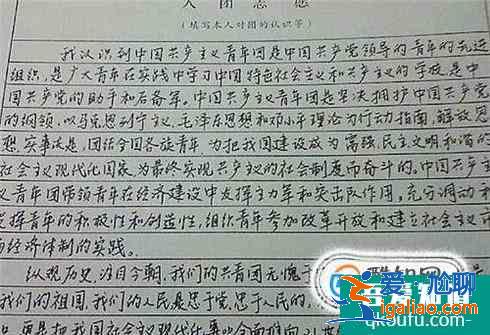 入团志愿
(填写本人对团的认识等)
我认识到中国共产主义青年团是中国共产党领导的青年的先进
组织,是广大青年在实践中学习中国特色社会主义和共产主义的学校,是中
国共产党的助手和后备军。中国共产主义青年团是坚决拥护中国共产党
的纲领,以马克思列宁主义、毛泽东思想和邓小平理论为行动指南,解放思
想,实事求是,团结全国各族青年,为把我国建设成为富强、民主、文明和谐的
社会主义现代化国家,为最终实现共产主义的社会制度而奋斗的。中国共产主
义青年团带领青年在经济建设中发挥主力军和突击队作用,充分调动和
发挥青年的积极性和创造性,组织青年参加改革开放和建立社会主义市
场经济体制的实践。
纵观历史,注目今朝,我们的共青团无愧于
我们的祖国,我们的人民是忠于党,忠于人民的
更是把我国社会主义现代化事业全面推向
qk5078.com